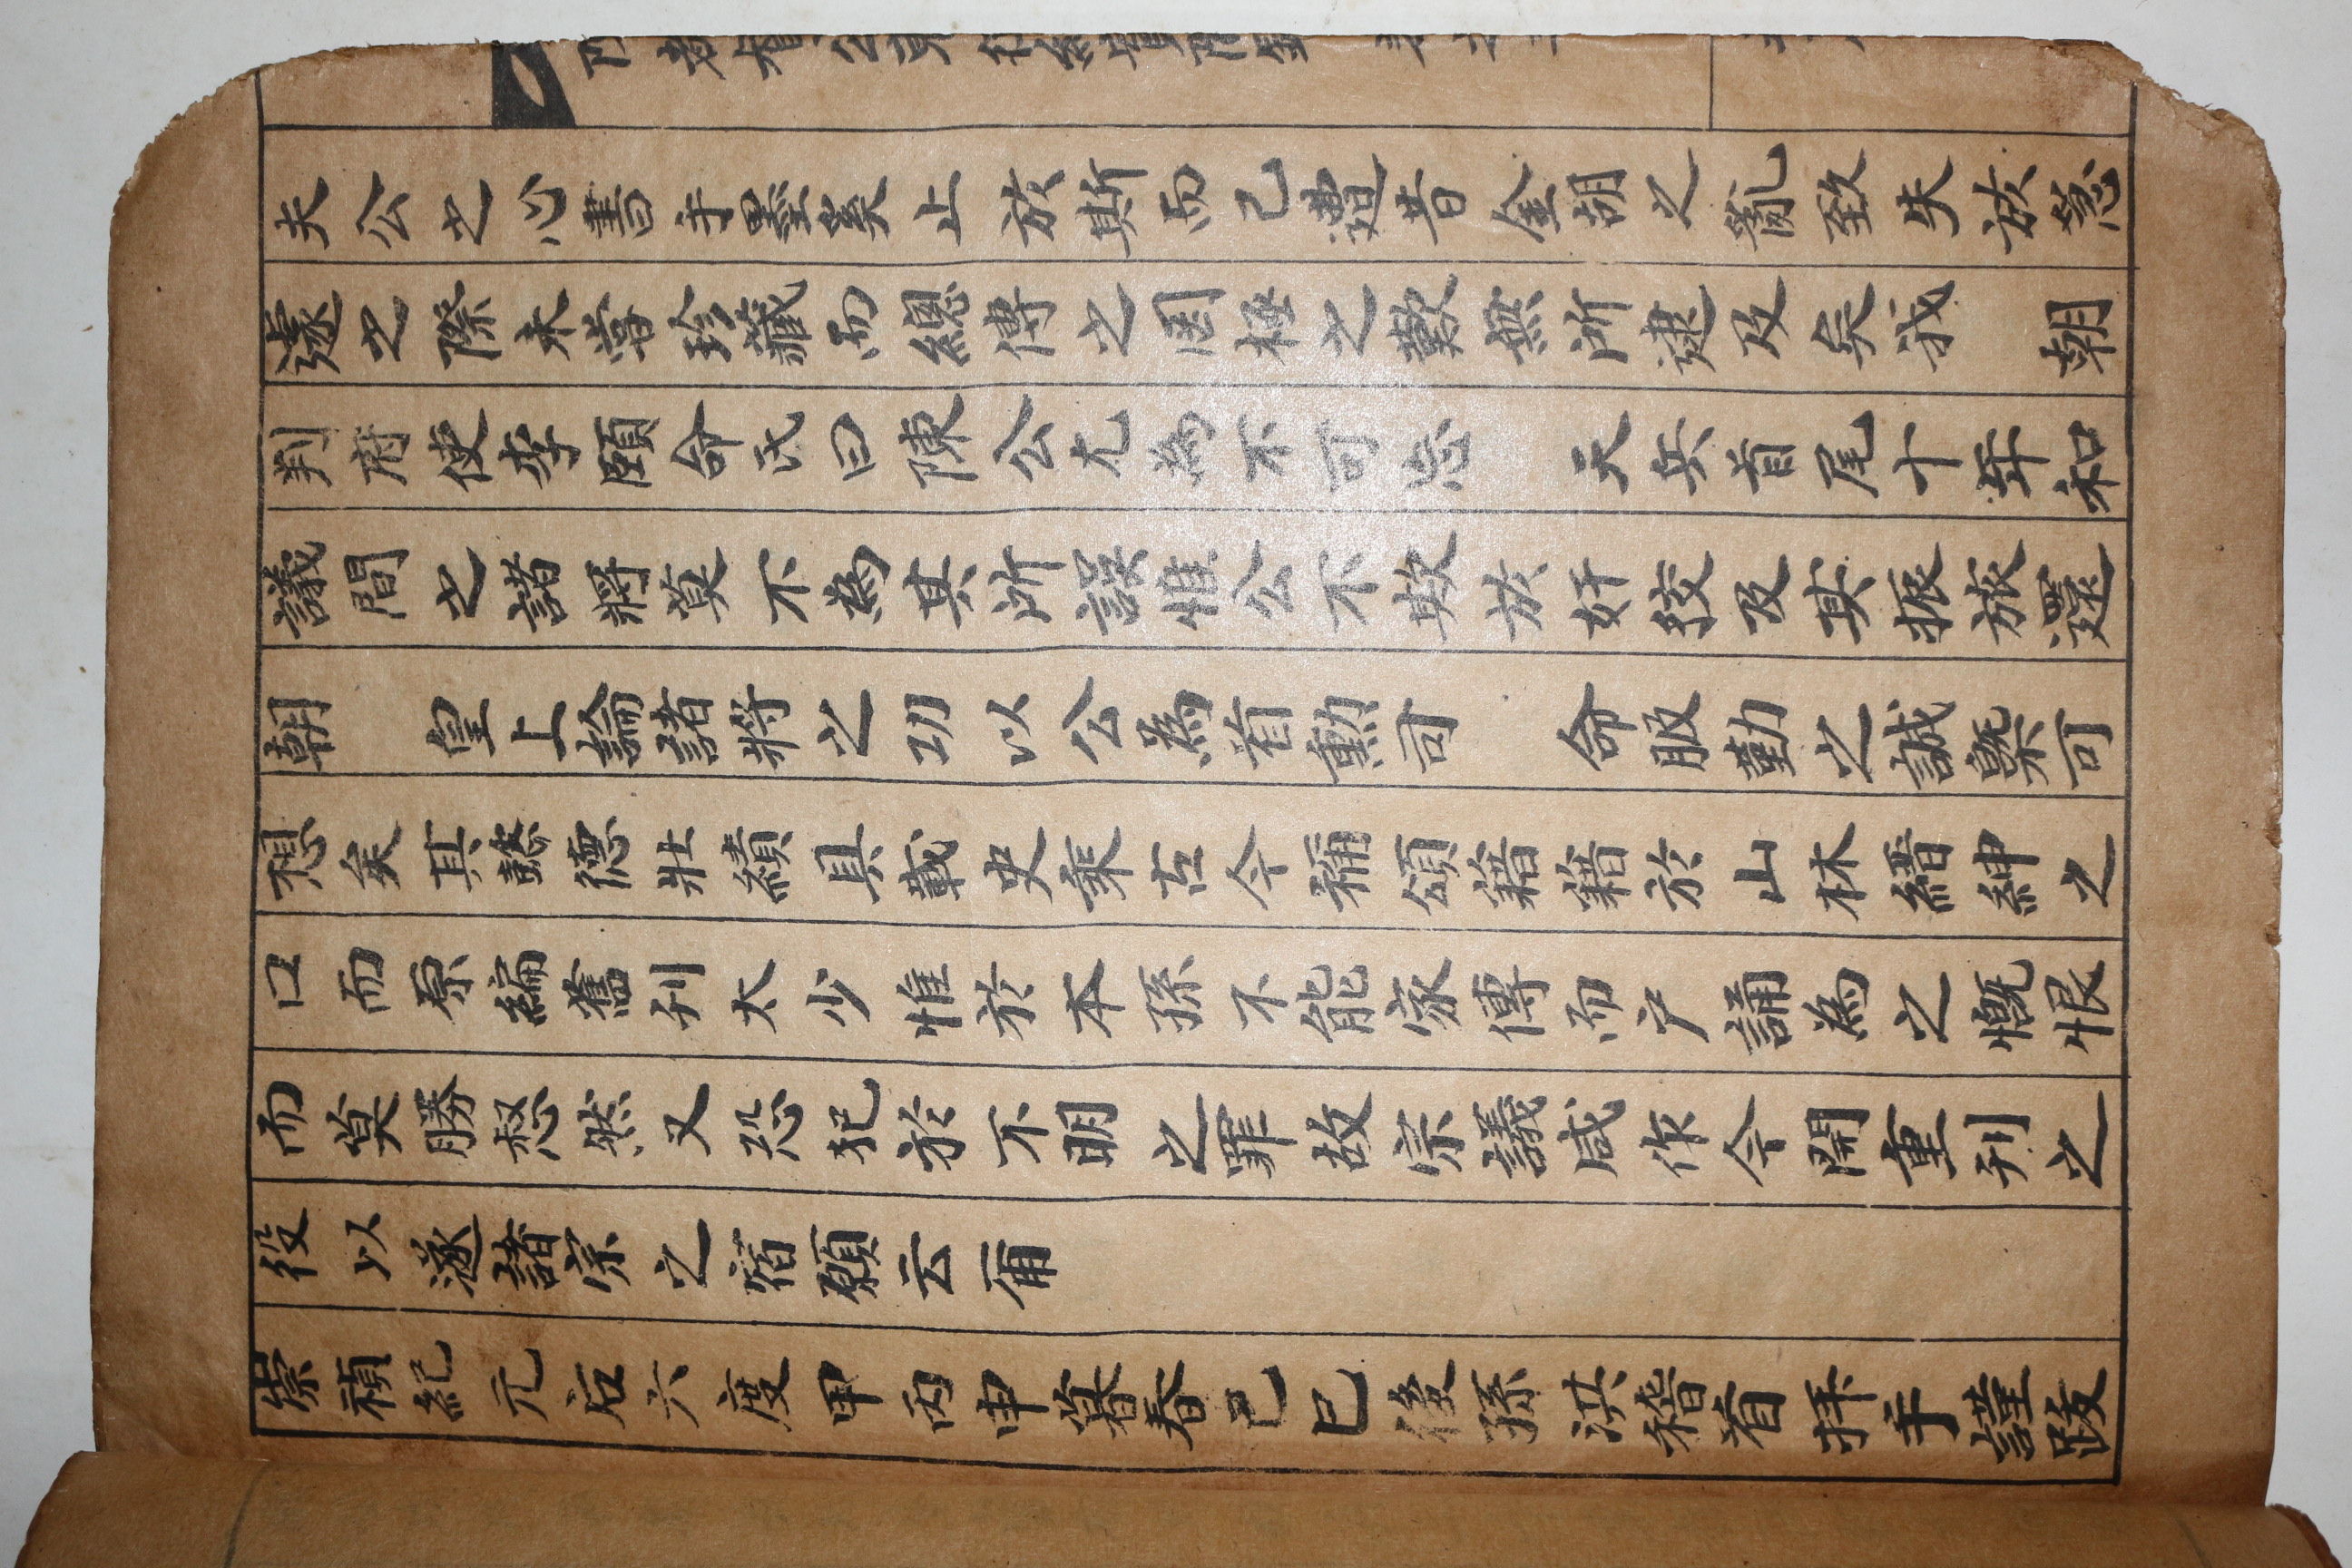 夫公之心書手墨奚止於斯而已遭昔金胡之亂致失於忽
遽之際未嘗珍藏而總傳之罔極之歎無所逮及矣我　朝
判府使李頤命氏曰陳公尤為不可忘　天兵首尾十年和
議間之諸將莫不為其所誤惟公不欺於奸狡及其振旅還
朝　皇上論諸將之功以公為首勳司　命服勤之誠槩可
想矣其懿德壯績具載史乘古今稱頌藉藉於山林縉紳之
口而原編舊刊太少惟於本孫不能家傳而户誦為之慨恨
而莫勝惄然又恐犯於不明之罪故宗議咸作今開重刊之
役以遂諸宗之宿願云爾
崇禎紀元后六度甲丙申暮春己巳後孫洪稽首拜手謹跋